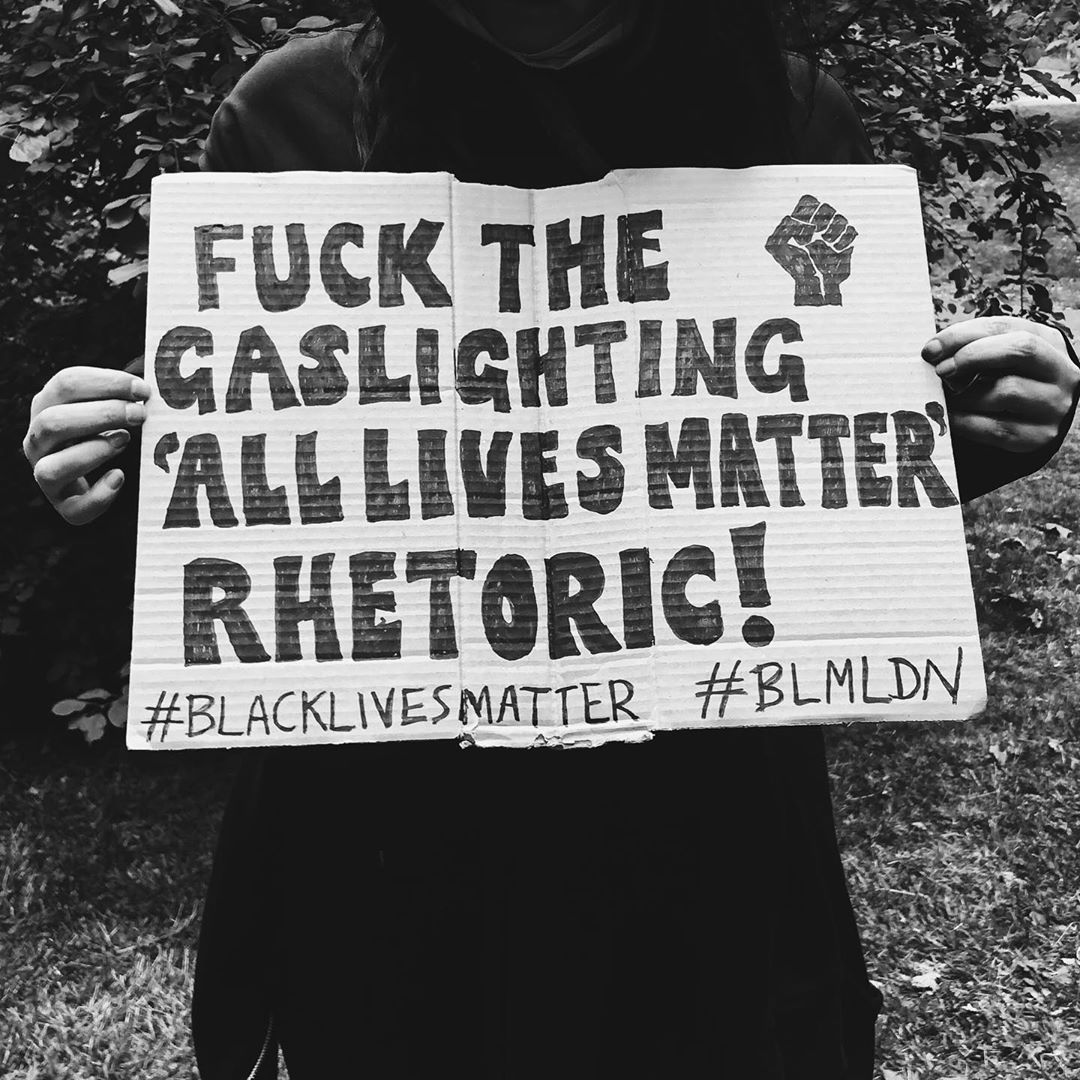 FUCK THE
GASLIGHTING
'ALL LIVES MATTER'
RHETORIC!
#BLACKLIVESMATTER #BLMLDN